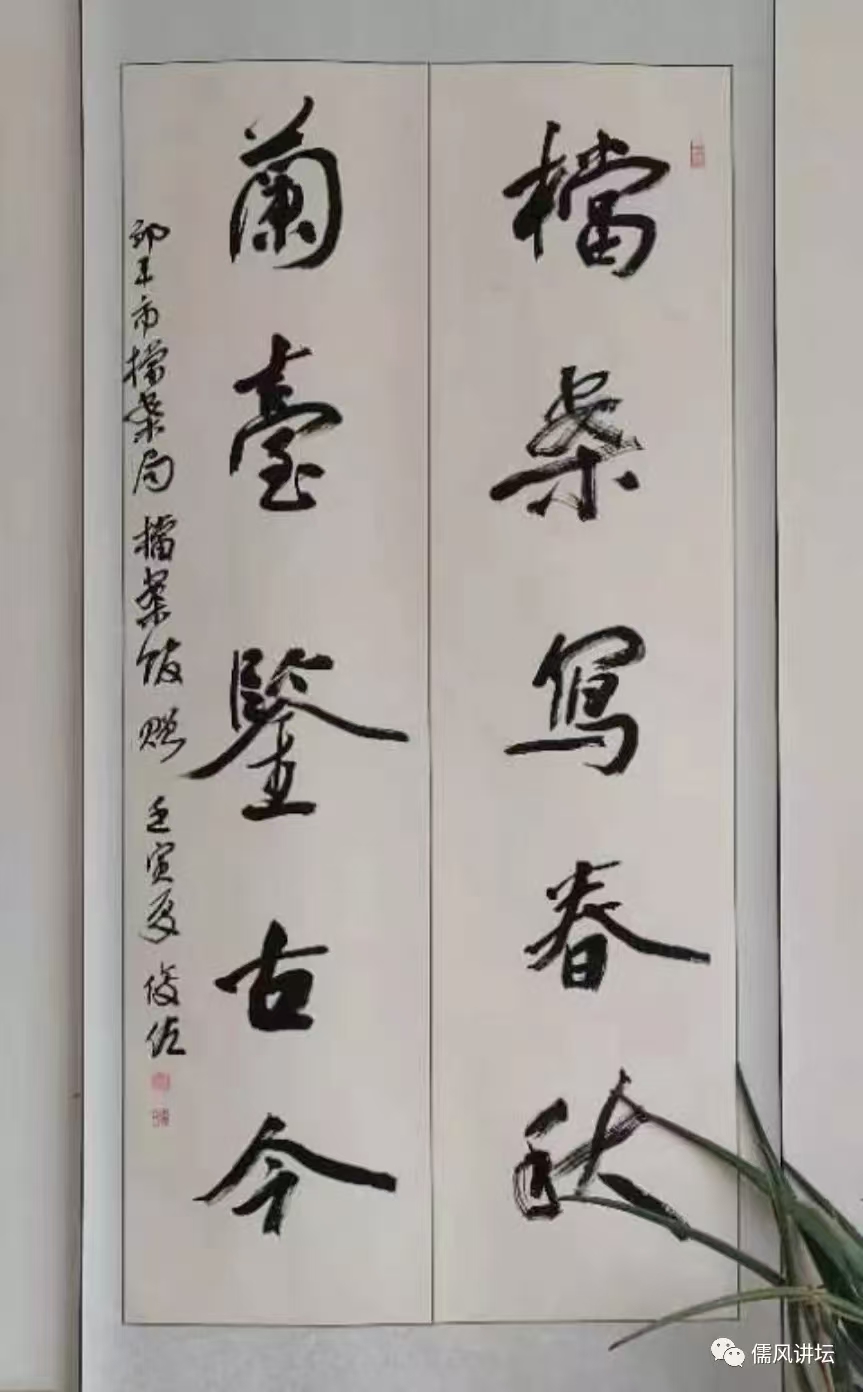 檔案寫春秋
蘭臺鑒古今
邹平市檔案局 檔案馆 赠 壬寅夏 俊佐
儒风讲坛